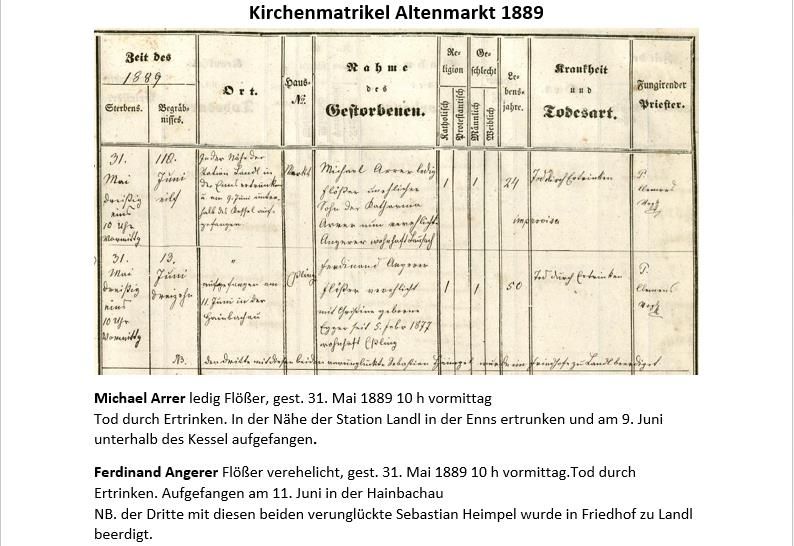 Kirchenmatrikel Altenmarkt 1889
Zeit des
1889
Sterbens.
Begräb-
nisses.
Ort.
Haus-
No.
Nahme
des
Gestorbenen.
Re-
ligion
Katholisch
Protestantisch
Ge-
schlecht
Männlich
Weiblich
Le-
bens-
jahre.
Krankheit
und
Todesart.
Fungirender
Priester.
31.
Mai
dreißig
eins
10 Uhr
Vormittg
Juni
In der Nähe der
Station Landl in
der Enns ertrunken
u. am 9. Juni unter-
halb des Kessel auf-
gefangen
Markt
Michael Arrer ledig
Flößer unehlicher
Sohn der Katharina
Arrer nun verehlicht
Angerer wohnhaft
1
1
24
Tod durch Ertrinken
improvisa
P.
Clemens
31.
Mai
dreißig
eins
10 Uhr
Vormittg
13.
Juni
dreizehn
"
aufgefangen am
11 Juni in der
Hainbachau
Ferdinand Angerer
Flößer verehlicht
mit Christine geborne
Egger seit 5. Febr 1877
wohnhaft Eßling
1
1
50
Tod durch Ertrinken
P.
Clemens
NB. der Dritte mit diesen beiden verunglückte Sebastian Heimpel wurde im Friedhofe zu Landl beerdiget
Michael Arrer ledig Flößer, gest. 31. Mai 1889 10 h vormittag
Tod durch Ertrinken. In der Nähe der Station Landl in der Enns ertrunken und am 9. Juni
unterhalb des Kessel aufgefangen.
Ferdinand Angerer Flößer verehelicht, gest. 31. Mai 1889 10 h vormittag.Tod durch
Ertrinken. Aufgefangen am 11. Juni in der Hainbachau
NB. der Dritte mit diesen beiden verunglückte Sebastian Heimpel wurde in Friedhof zu Landl
beerdigt.